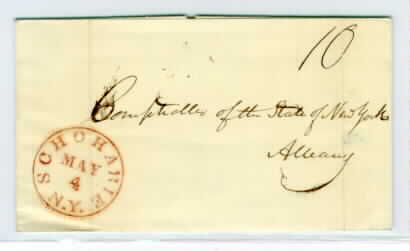 10
Comptroller of the State of New York
Albany
SCHOHARIE N.Y.
MAY
4